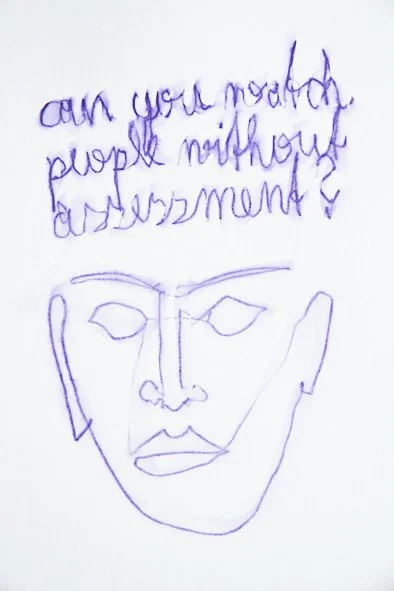 can you watch
people without
assessment?